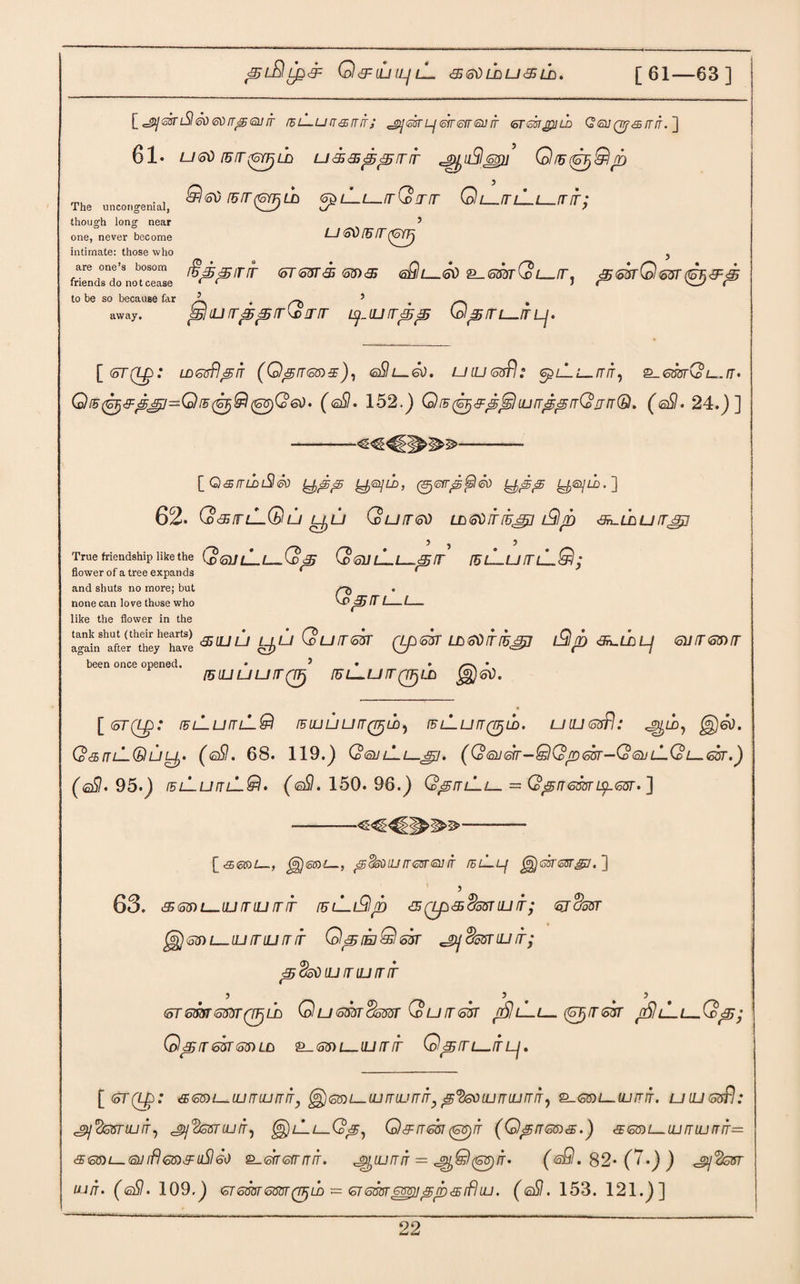 தமிழ்ச் செய்யுட் கலம்பகம். [61—63]
[அன்பில்லாதவர் நட்பாகார்; அன்புள்ளவர் என்றும் வேறாகார்.]
61. பல நாளும் பக்கத்தார் ஆயினு' நெஞ்சிற்
சில நாளும் ஒட்டாரோ டொட்டார்;
பலநாளு'
நீத்தார் என்க கை விடல் உண்டோ, தன்னெஞ்சத்
தியாத்தாரோ டியாத்த தொடர்பு.
The uncongenial,
though long near
one, never become
intimate: those who
are one's bosom
friends do not cease
to be so because far
away.
[எழு: மனிதர் (தொகை), விடல். பயனி: ஒட்டார், உண்டோ.
நெஞ்சத்து=நெஞ்சினுலே. (வி. 152.) நெஞ்சத்தியாத்தாரோடு. (வி. 24.)]
[கொம்பில் பூத்த பூவும், குளத்தில் பூத்த பூவும்.]
62. கோட்டுப் பூப் போல் மலர்ந்து பிற் கூம்பாது
வேட்டதே வேட்டதா' நட்பாட்சி;
தோட்ட
கயப் பூப் போன் முன் மலர்ந்து பிற் கூம்பு வாரை
நயப்பாரு' நட்பாரும் இல்.
True friendship like the
flower of a tree expands
and shuts no more; but
none can love those who
like the flower in the
tank shut (their hearts)
again after they have
been once opened.
[எழு: நட்பாட்சி நயப்பாரும், நட்பாரும். பயனி: ஆம், இல்.
கோட்டுப்பூ. (வி. 68. 119.) வேட்டது. (வேள்–கிறேன்–வேட்டேன்.)
(வி. 95.) நட்பாட்சி. (வி. 150. 96.) தோட்ட = தோண்டின.]
[கடை, இடை, தலையானவர் நட்பு இன்னது.]
63. கடையாயார் நட்பிற் கமுகனையர்; ஏனை
இடையாயார் தெங்கின் அனையர்;
தலையாயார்
எண்ணரும் பெண்ணை போன் றிட்ட ஞான் றிட்டதே;
தொன்மை உடையார் தொடர்பு.
[எழு: கடையாயார், இடையாயார், தலையாயார், உடையார். பயனி:
அனையர், அனையர், இட்டதே, சொன்னார் (தொகை.) கடையாயார்=
கடைவரிசையில் உள்ளார். ஆயார் = ஆகினார். (வி. 82. (7.)) அனை
யர். (வி. 109.) எண்ணரும் = எண்ணுதற்கரிய. (வி. 153. 121.)]
22